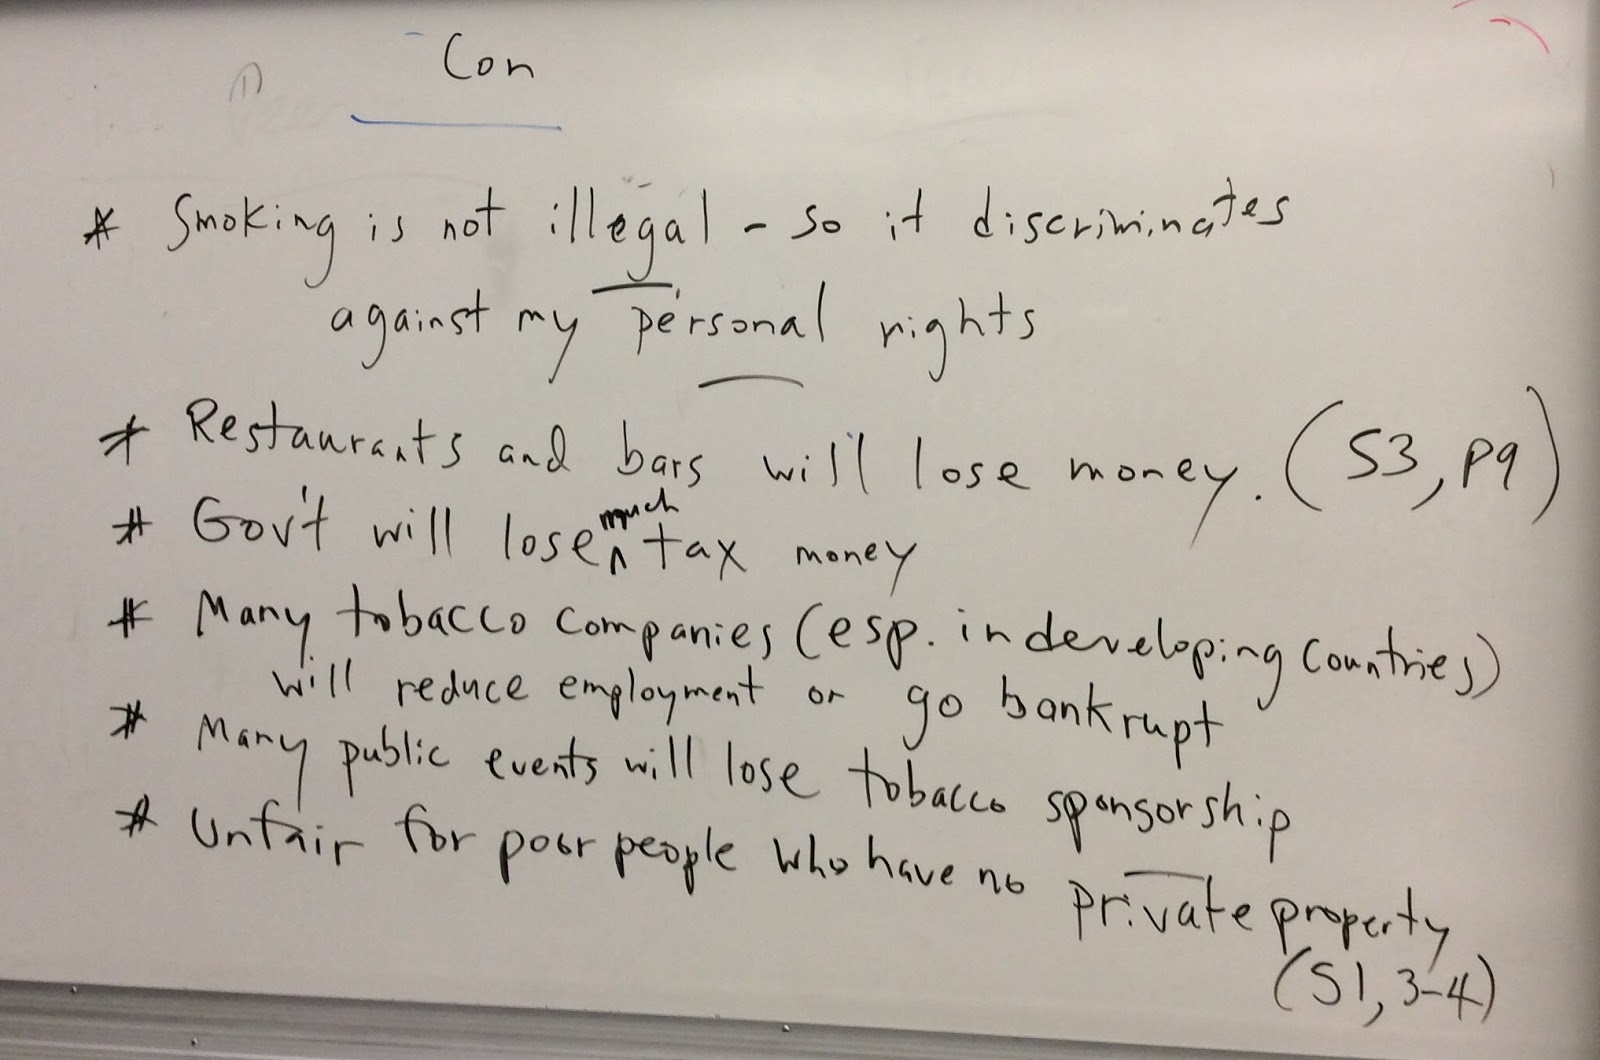 Con
* Smoking is not illegal - so it discriminates
against my personal rights
* Restaurants and bars will lose money. (S3, P9)
* Gov't will lose ^much tax money
* Many tobacco companies (esp. in developing countries)
will reduce employment or go bankrupt
* Many public events will lose tobacco sponsorship
* Unfair for poor people who have no private property
(S1, 3-4)